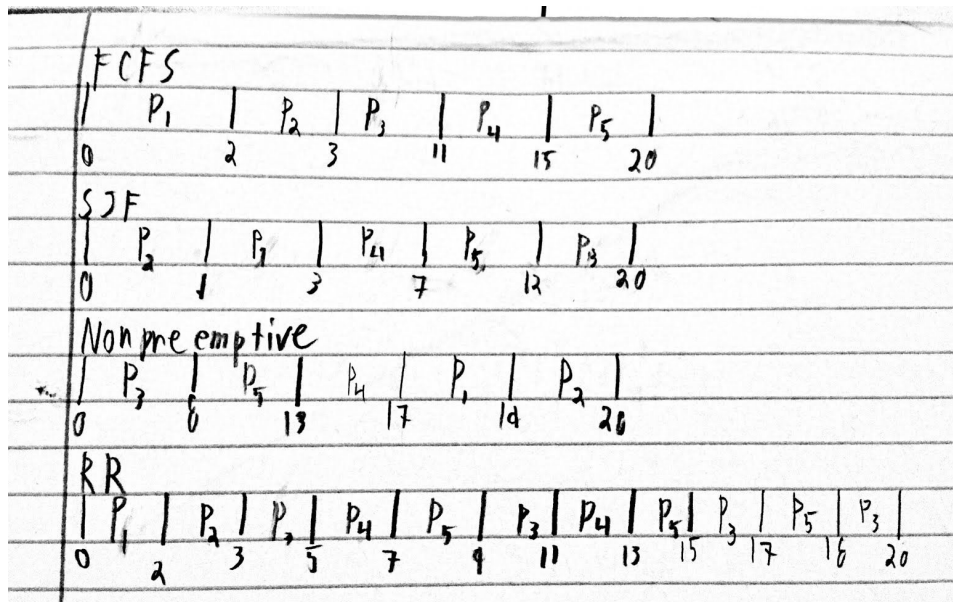 FCFS
P1 P2 P3 P4 P5
0 2 3 11 15 20
SJF
P2 P1 P4 P5 P3
0 1 3 7 12 20
Nonpreemptive
P3 P5 P4 P1 P2
0 8 13 17 19 20
RR
P1 P2 P3 P4 P5 P3 P4 P5 P3 P5 P3
0 2 3 5 7 9 11 13 15 17 18 20